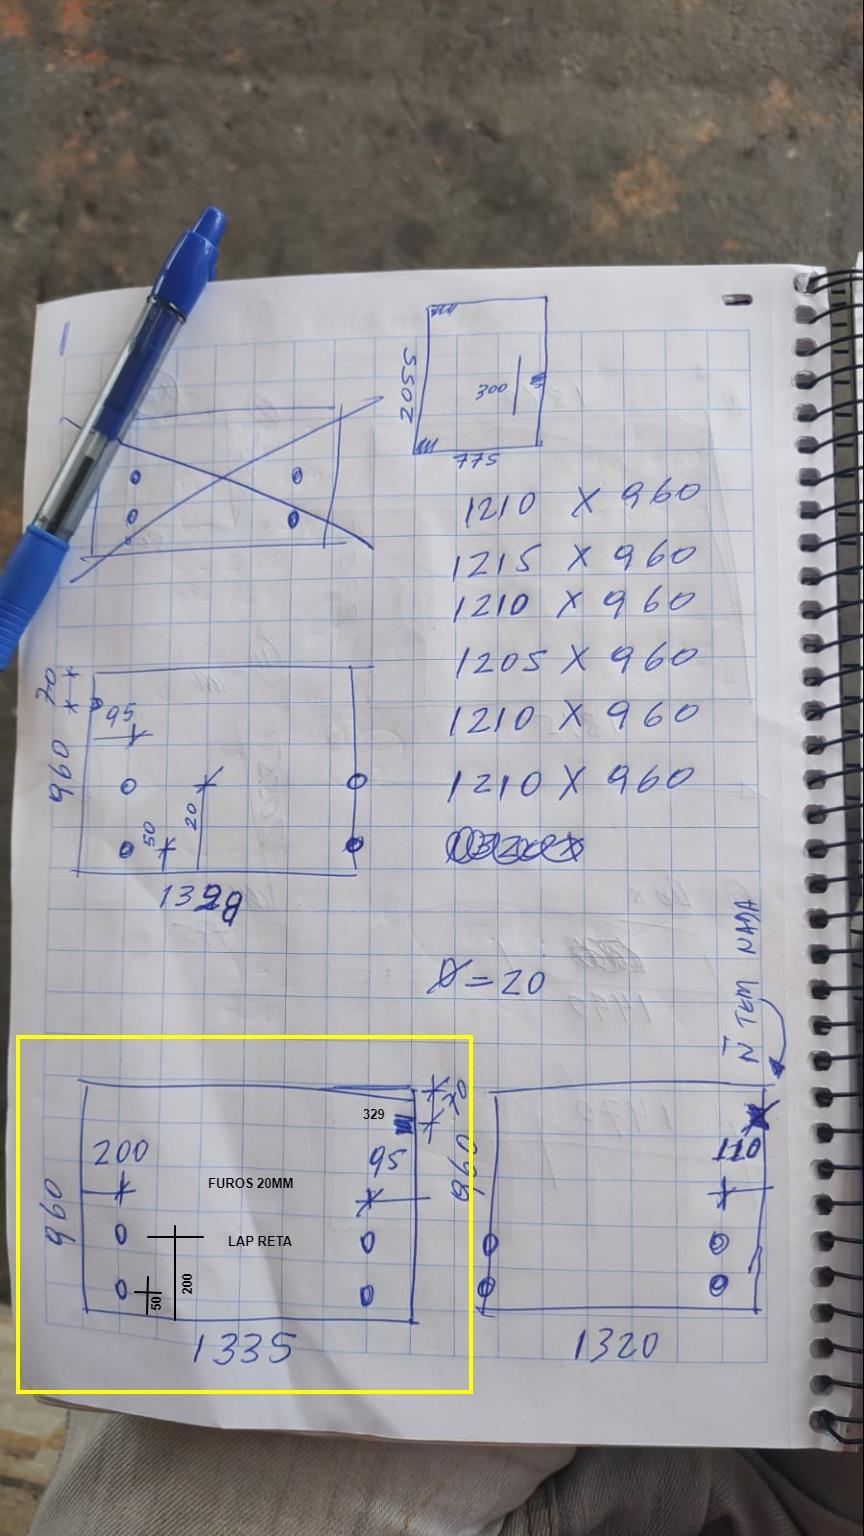 2055
300
775
1210 X 960
1215 X 960
1210 X 960
1205 X 960
1210 X 960
1210 X 960
70
95
960
50
20
Ø = 20
N̄ TEM NADA
329
70
200
95
FUROS 20MM
960
LAP RETA
50
200
1335
960
110
1320